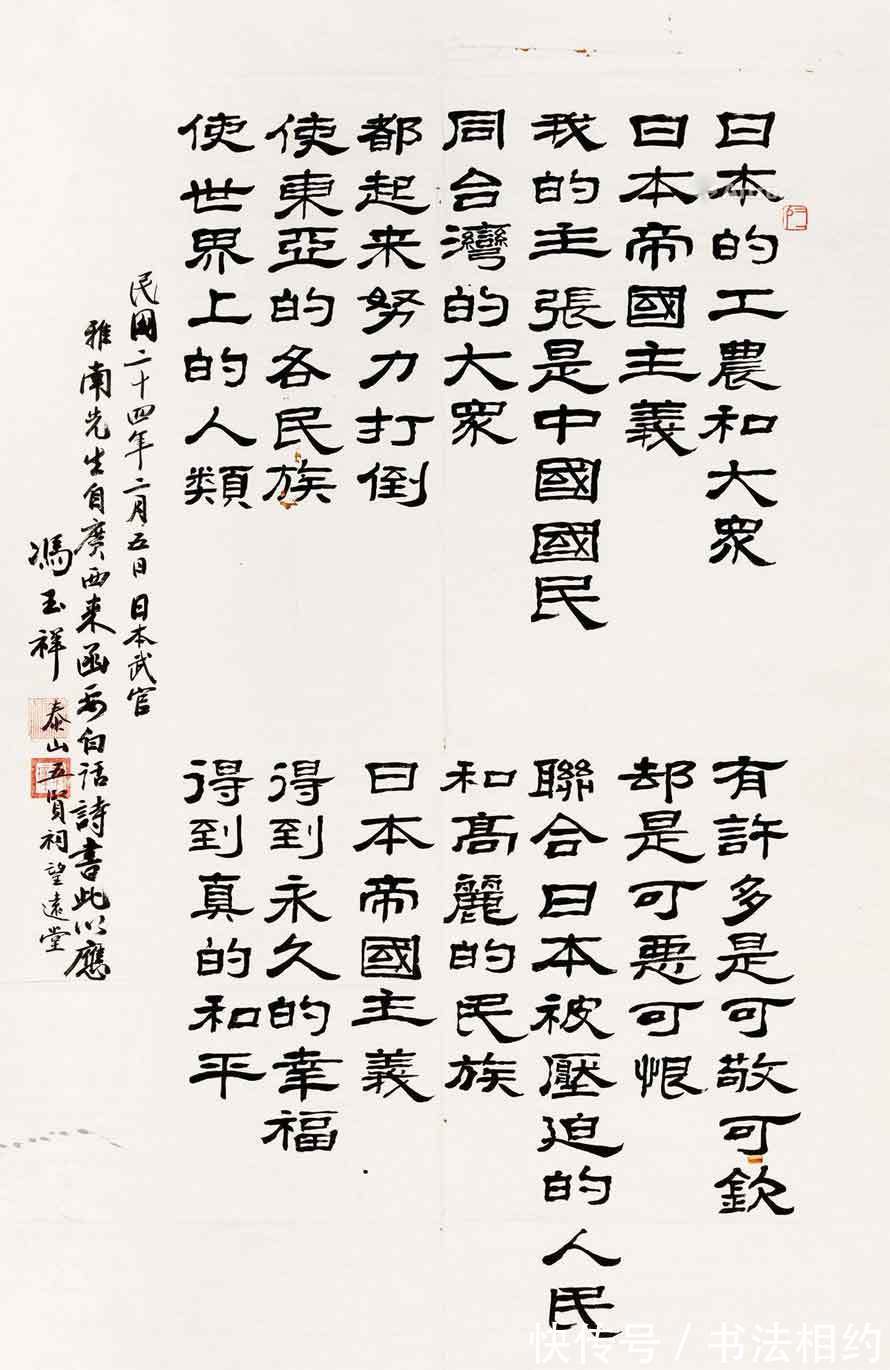 日本的工農和大眾
有許多是可敬可欽
日本帝國主義
却是可惡可恨
我的主張是中國國民
聯合日本被壓迫的人民
同台灣的大眾
和高麗的民族
都起来努力打倒
日本帝國主義
使東亞的各民族
得到永久的幸福
使世界上的人類
得到真的和平
民國二十四年二月五日 日本武官
雅南先生自廣西来函要白话詩書此以應
馮玉祥 泰山五賢祠望遠堂
快传号 / 书法相约